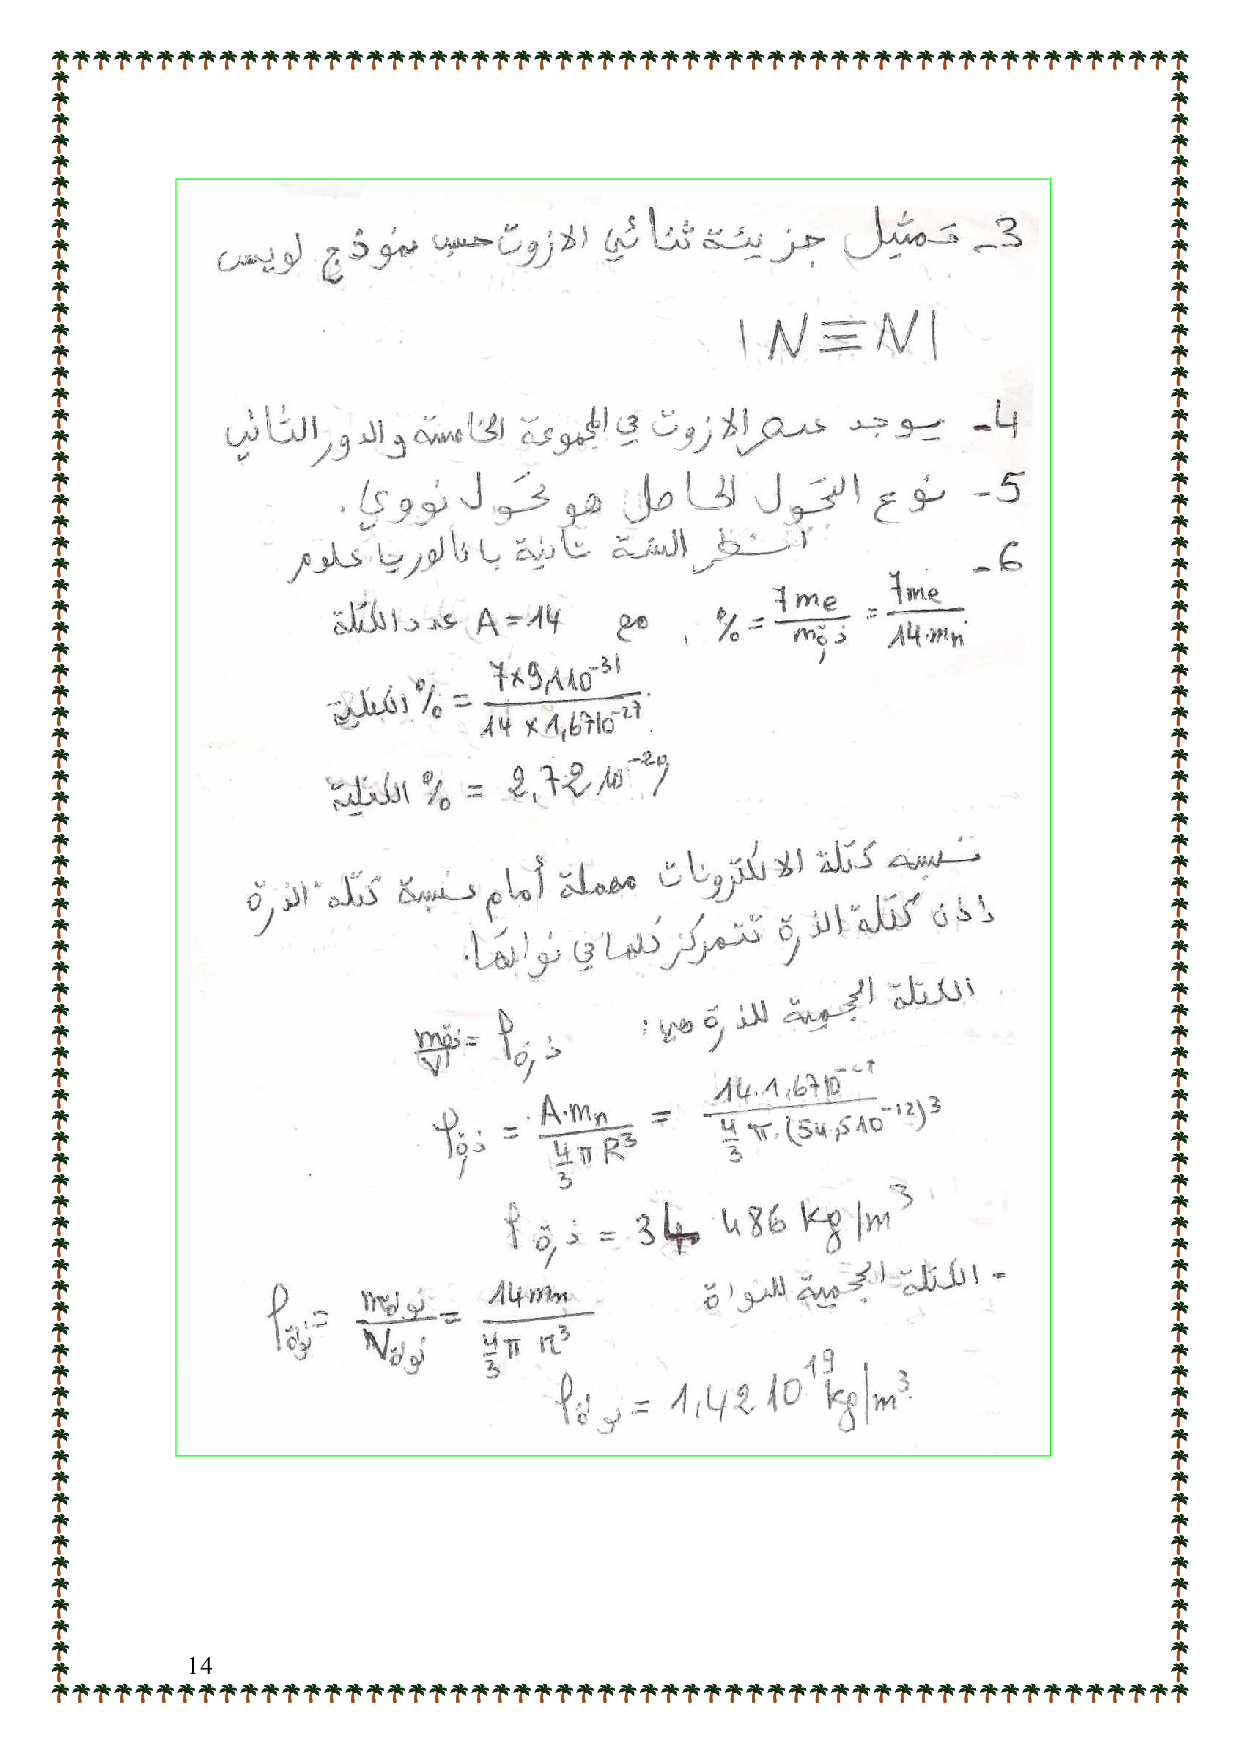 3- تمثيل جزيئة ثنائي الازوت حسب نموذج لويس
|N≡N|
4- يوجد عنصر الازوت في المجموعة الخامسة والدور الثاني
5- نوع التحول الحاصل هو تحول نووي.
6- انظر السنة ثانية باكالوريا علوم
% = 7me/mذرة = 7me/14·mn , مع A=14 عدد الكتلة
% الكتلية = 7×9,1 10⁻³¹ / 14×1,67 10⁻²⁷
% الكتلية = 2,72 10⁻²%
نسبة كتلة الالكترونات مهملة أمام نسبة كتلة الذرة
إذن كتلة الذرة تتمركز كلها في نواتها.
الكتلة الحجمية للذرة هي: ρذرة = mذرة/V
ρذرة = A·mn / 4/3 π R³ = 14·1,67 10⁻²⁷ / 4/3 π·(54,5 10⁻¹²)³
ρذرة = 34 486 kg/m³
- الكتلة الحجمية للنواة ρنواة = mنواة/Vنواة = 14mn / 4/3 π r³
ρنواة = 1,42 10¹⁹ kg/m³
14